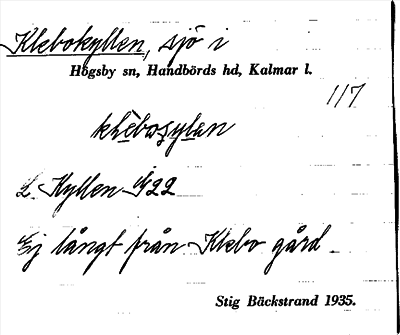 Klebokyllen, sjö i
Högsby sn, Handbörds hd, Kalmar l.
117
L. Kyllen G22
Ej långt från Klebo gård
Stig Bäckstrand 1935.